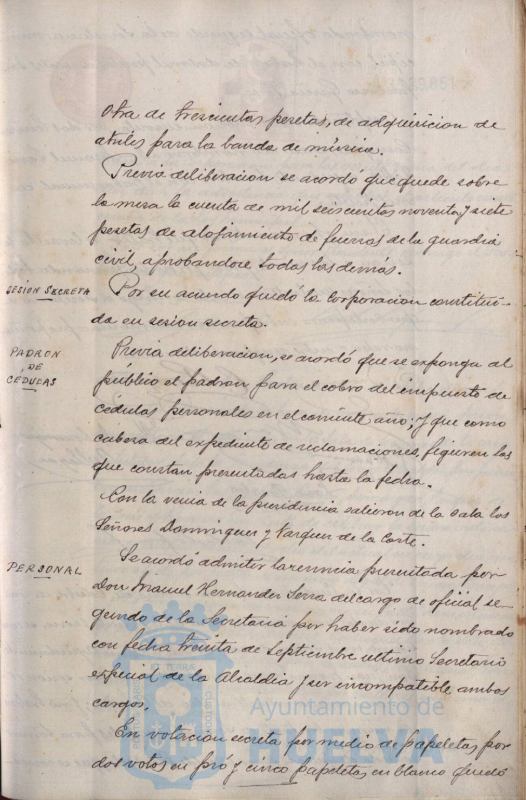 Otra de trescientas pesetas, de adquisicion de
atriles para la banda de música.
Previa deliberacion se acordó que quede sobre
la mesa la cuenta de mil seiscientas noventa y siete
pesetas de alojamiento de fuerzas de la guardia
civil, aprobandose todas las demás.
SESION SECRETA
Por su acuerdo quedó la Corporacion constitui-
da en sesion secreta.
PADRON
DE
CEDULAS
Previa deliberacion, se acordó que se exponga al
público el padron para el cobro del impuesto de
cédulas personales en el corriente año; y que como
cabeza del expediente de reclamaciones, figuren las
que constan presentadas hasta la fecha.
Con la venia de la presidencia salieron de la sala los
Señores Dominguez y Vazquez de la Corte.
PERSONAL
Se acordó admitir la renuncia presentada por
Don Manuel Hernandez Serra del cargo de oficial se-
gundo de la Secretaria por haber sido nombrado
con fecha treinta de Septiembre ultimo Secretario
especial de la Alcaldia y ser incompatible ambos
cargos.
En votacion secreta por medio de papeletas por
dos votos en pró y cinco papeletas en blanco quedó
Ayuntamiento de
HUELVA